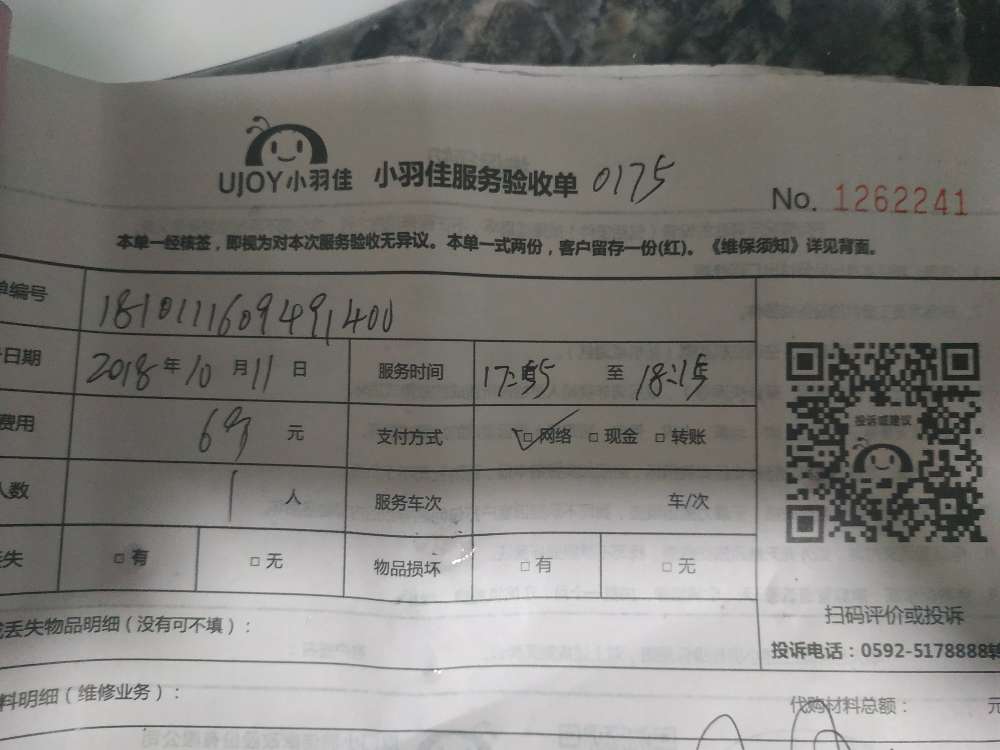 UJOY小羽佳 小羽佳服务验收单 0175
No. 1262241
本单一经核签，即视为对本次服务验收无异议。本单一式两份，客户留存一份(红)。《维保须知》详见背面。
单编号 1810111609491400
日期 2018年10月11日 服务时间 17:55 至 18:15
费用 69 元 支付方式 ☑网络 □现金 □转账
人数 1 人 服务车次 车/次
丢失 □有 □无 物品损坏 □有 □无
投诉或建议
扫码评价或投诉
投诉电话：0592-5178888转
丢失物品明细（没有可不填）：
料明细（维修业务）： 代购材料总额： 元